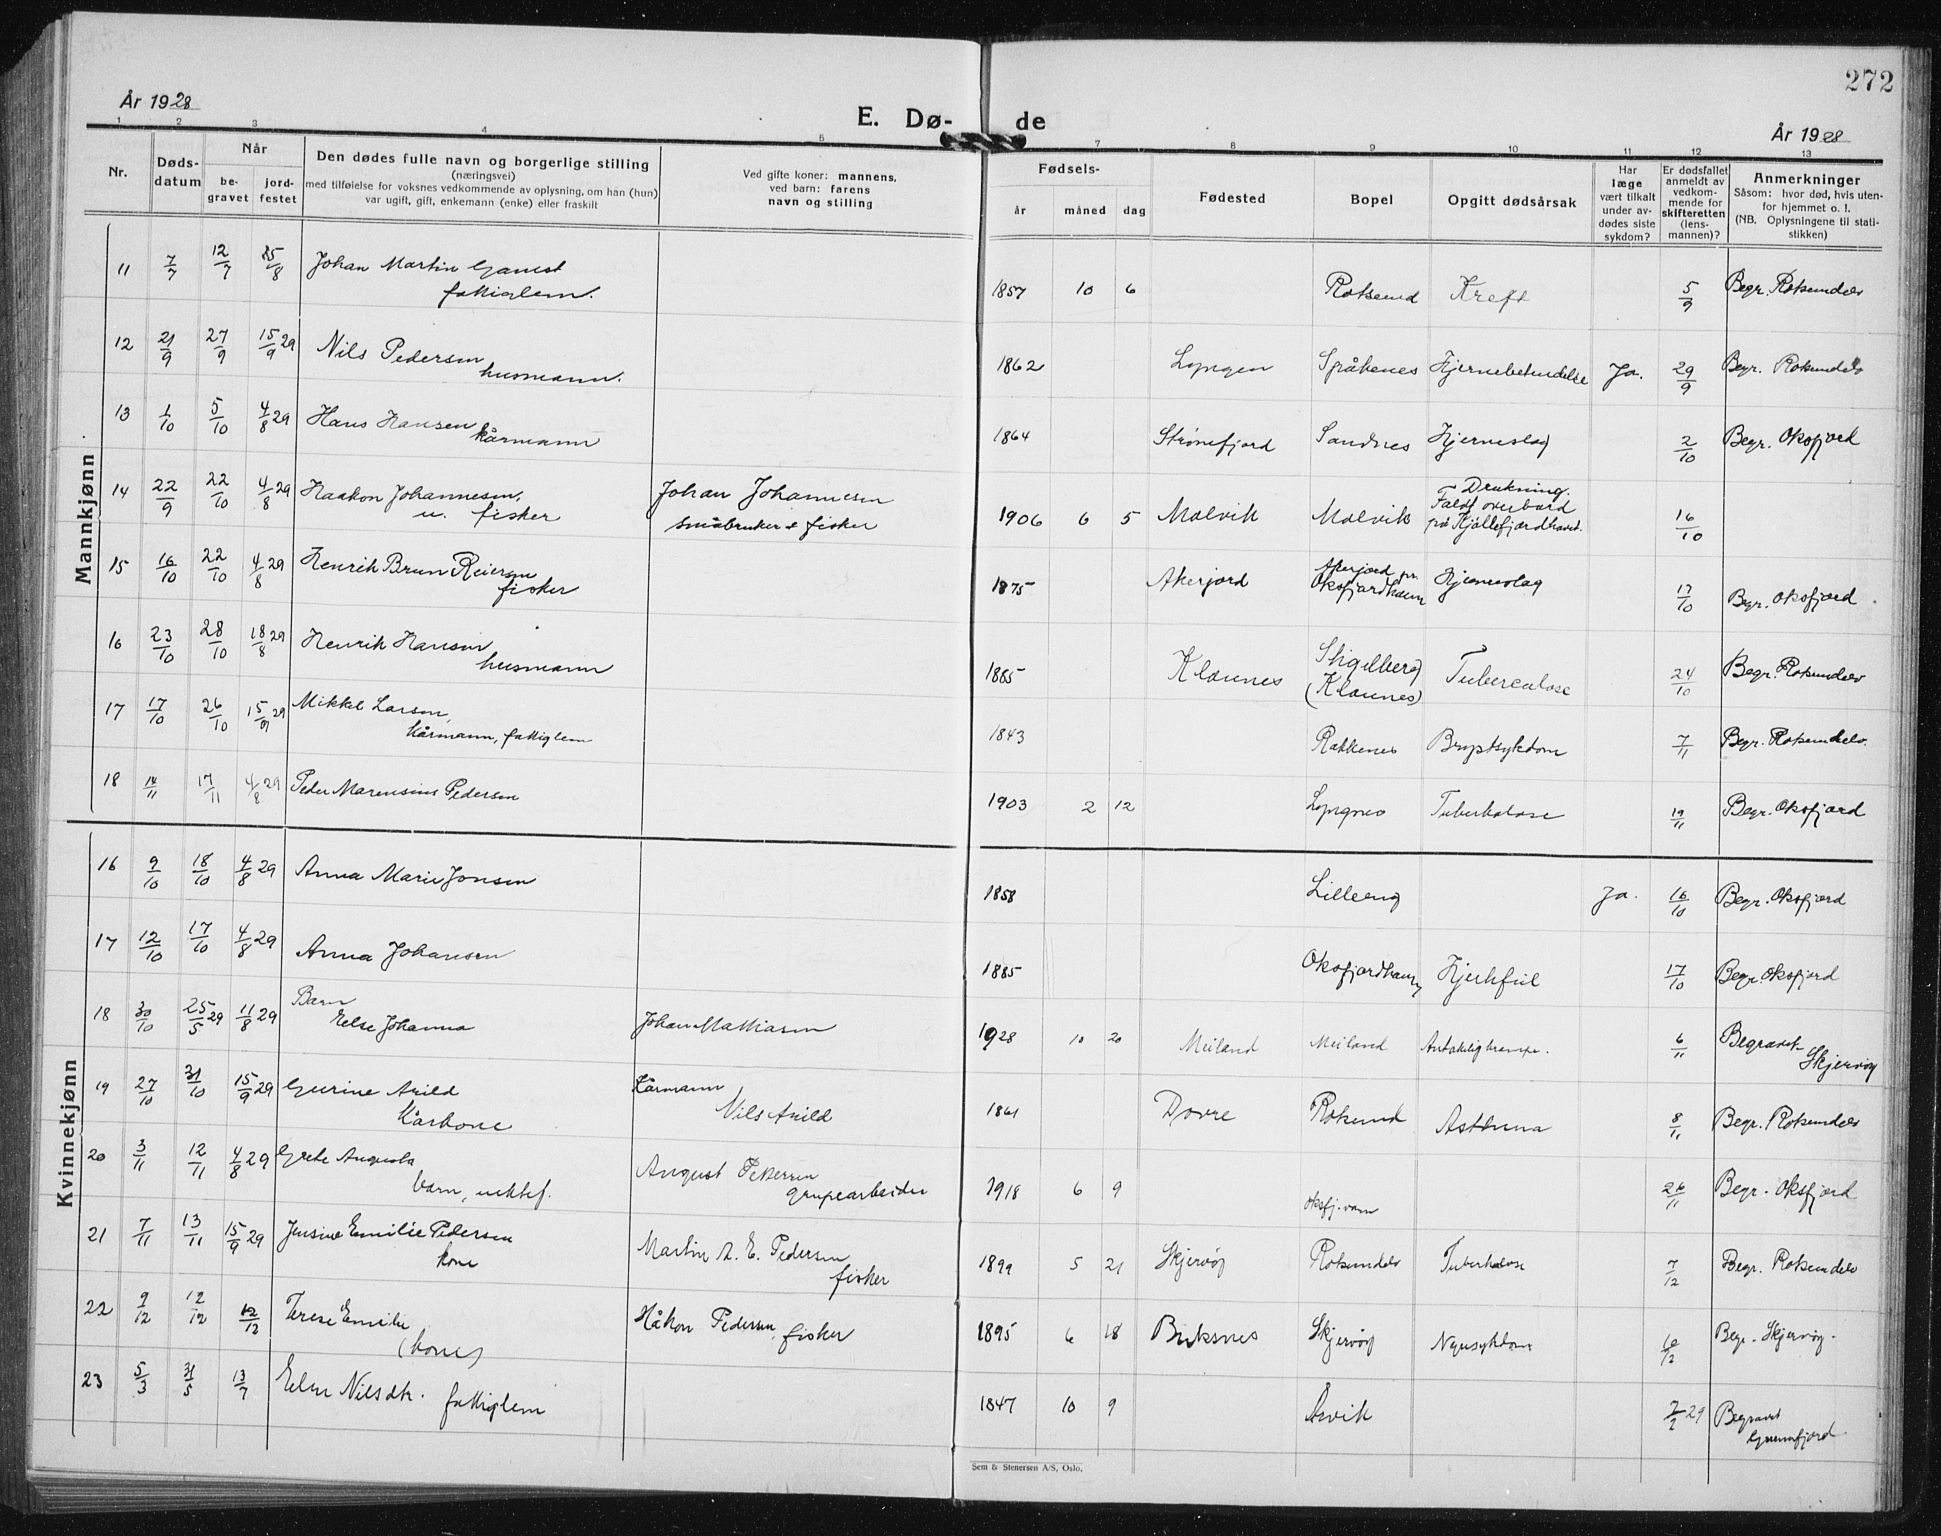 272
År 1928
E. Dø- de
År 1928
1 2 3 4 5 7 8 9 10 11 12 13
Nr.
Døds-
datum
Når
be-
gravet
jord-
festet
Den dødes fulle navn og borgerlige stilling
(næringsvei)
med tilføielse for voksnes vedkommende av oplysning, om han (hun)
var ugift, gift, enkemann (enke) eller fraskilt
Ved gifte koner: mannens,
ved barn: farens
navn og stilling
Fødsels-
år måned dag
Fødested
Bopel
Opgitt dødsårsak
Har
læge
vært tilkalt
under av-
dødes siste
sykdom?
Er dødsfallet
anmeldt av
vedkom-
mende for
skifteretten
(lens-
mannen)?
Anmerkninger
Såsom: hvor død, hvis uten-
for hjemmet o. l.
(NB. Oplysningene til stati-
stikken)
Mannkjønn
11 7/7 12/7 25/8 Johan Martin 1857 10 6 Rotsund Kreft 5/9 Begr. Rotsundelv
fattiglem.
12 21/9 27/9 15/9 29 Nils Pedersen 1862 Lyngen Spåkenes Hjernebetendelse Ja. 29/9 Begr. Rotsundelv
husmann.
13 1/10 5/10 4/8 29 Hans Hansen 1864 Strømfjord Sandnes Hjerneslag 2/10 Begr. Oksfjord
kårmann
14 22/9 22/10 4/8 29 Haakon Johannesen, Johan Johannesen 1906 6 5 Malvik Malvik Drukning. 16/10
u. fisker småbruker & fisker Faldt overbord
på Kjøllefjordhavet.
15 16/10 22/10 4/8 29 Henrik Brun Reiersen 1875 Akerjord Akerjord pr. Hjerneslag 17/10 Begr. Oksfjord
fisker Oksfjordhavn
16 23/10 28/10 18/8 29 Henrik Hansen 1865 Klaunes Stigelberg Tuberculose 24/10 Begr. Rotsundelv
husmann (Klaunes)
17 17/10 26/10 15/9 29 Mikkel Larsen, 1843 Rakkenes Brystsykdom 7/11 Begr. Rotsundelv.
kårmann, fattiglem
18 14/11 17/11 4/8 29 Peder Marensius Pedersen 1903 2 12 Lyngnes Tuberkulose 19/11 Begr. Oksfjord
Kvinnekjønn
16 9/10 18/10 4/8 29 Anna Marie Jonsen 1858 Lilleeng Ja. 16/10 Begr. Oksfjord
17 12/10 17/10 4/8 29 Anna Johansen 1885 Oksfjordhavn Hjertefeil 17/10 Begr. Oksfjord
18 30/10 25/5 29 11/8 29 Barn
Else Johanna Johan Mathiasen 1928 10 20 Meiland Meiland 6/11 Begravet
Skjervøy
19 27/10 31/10 15/9 29 Gurine Arild Kårmann 1861 Dovre Rotsund Asthma 8/11 Begr. Rotsundelv
Kårkone Nils Arild
20 3/11 12/11 4/8 29 Grete Augusta August Pettersen 1918 6 9 26/11 Begr. Oksfjord
barn, uektef. grupearbeider
21 7/11 13/11 15/9 29 Jensine Emilie Pedersen Martin A. E. Pedersen 1899 5 21 Skjervøy Rotsundelv Tuberkulose 7/12 Begr. Rotsundelv
kone fisker
22 9/12 12/12 12/12 Terese Emilie Håkon Pedersen, fisker 1895 6 18 Buksnes Skjervøy Nyresykdom 10/12 Begr. Skjervøy.
(kone)
23 5/3 31/5 13/7 Elen Nilsdtr. fattiglem 1847 10 9 Årvik 7/2 29 Begravet
Sem & Stenersen A/S, Oslo.